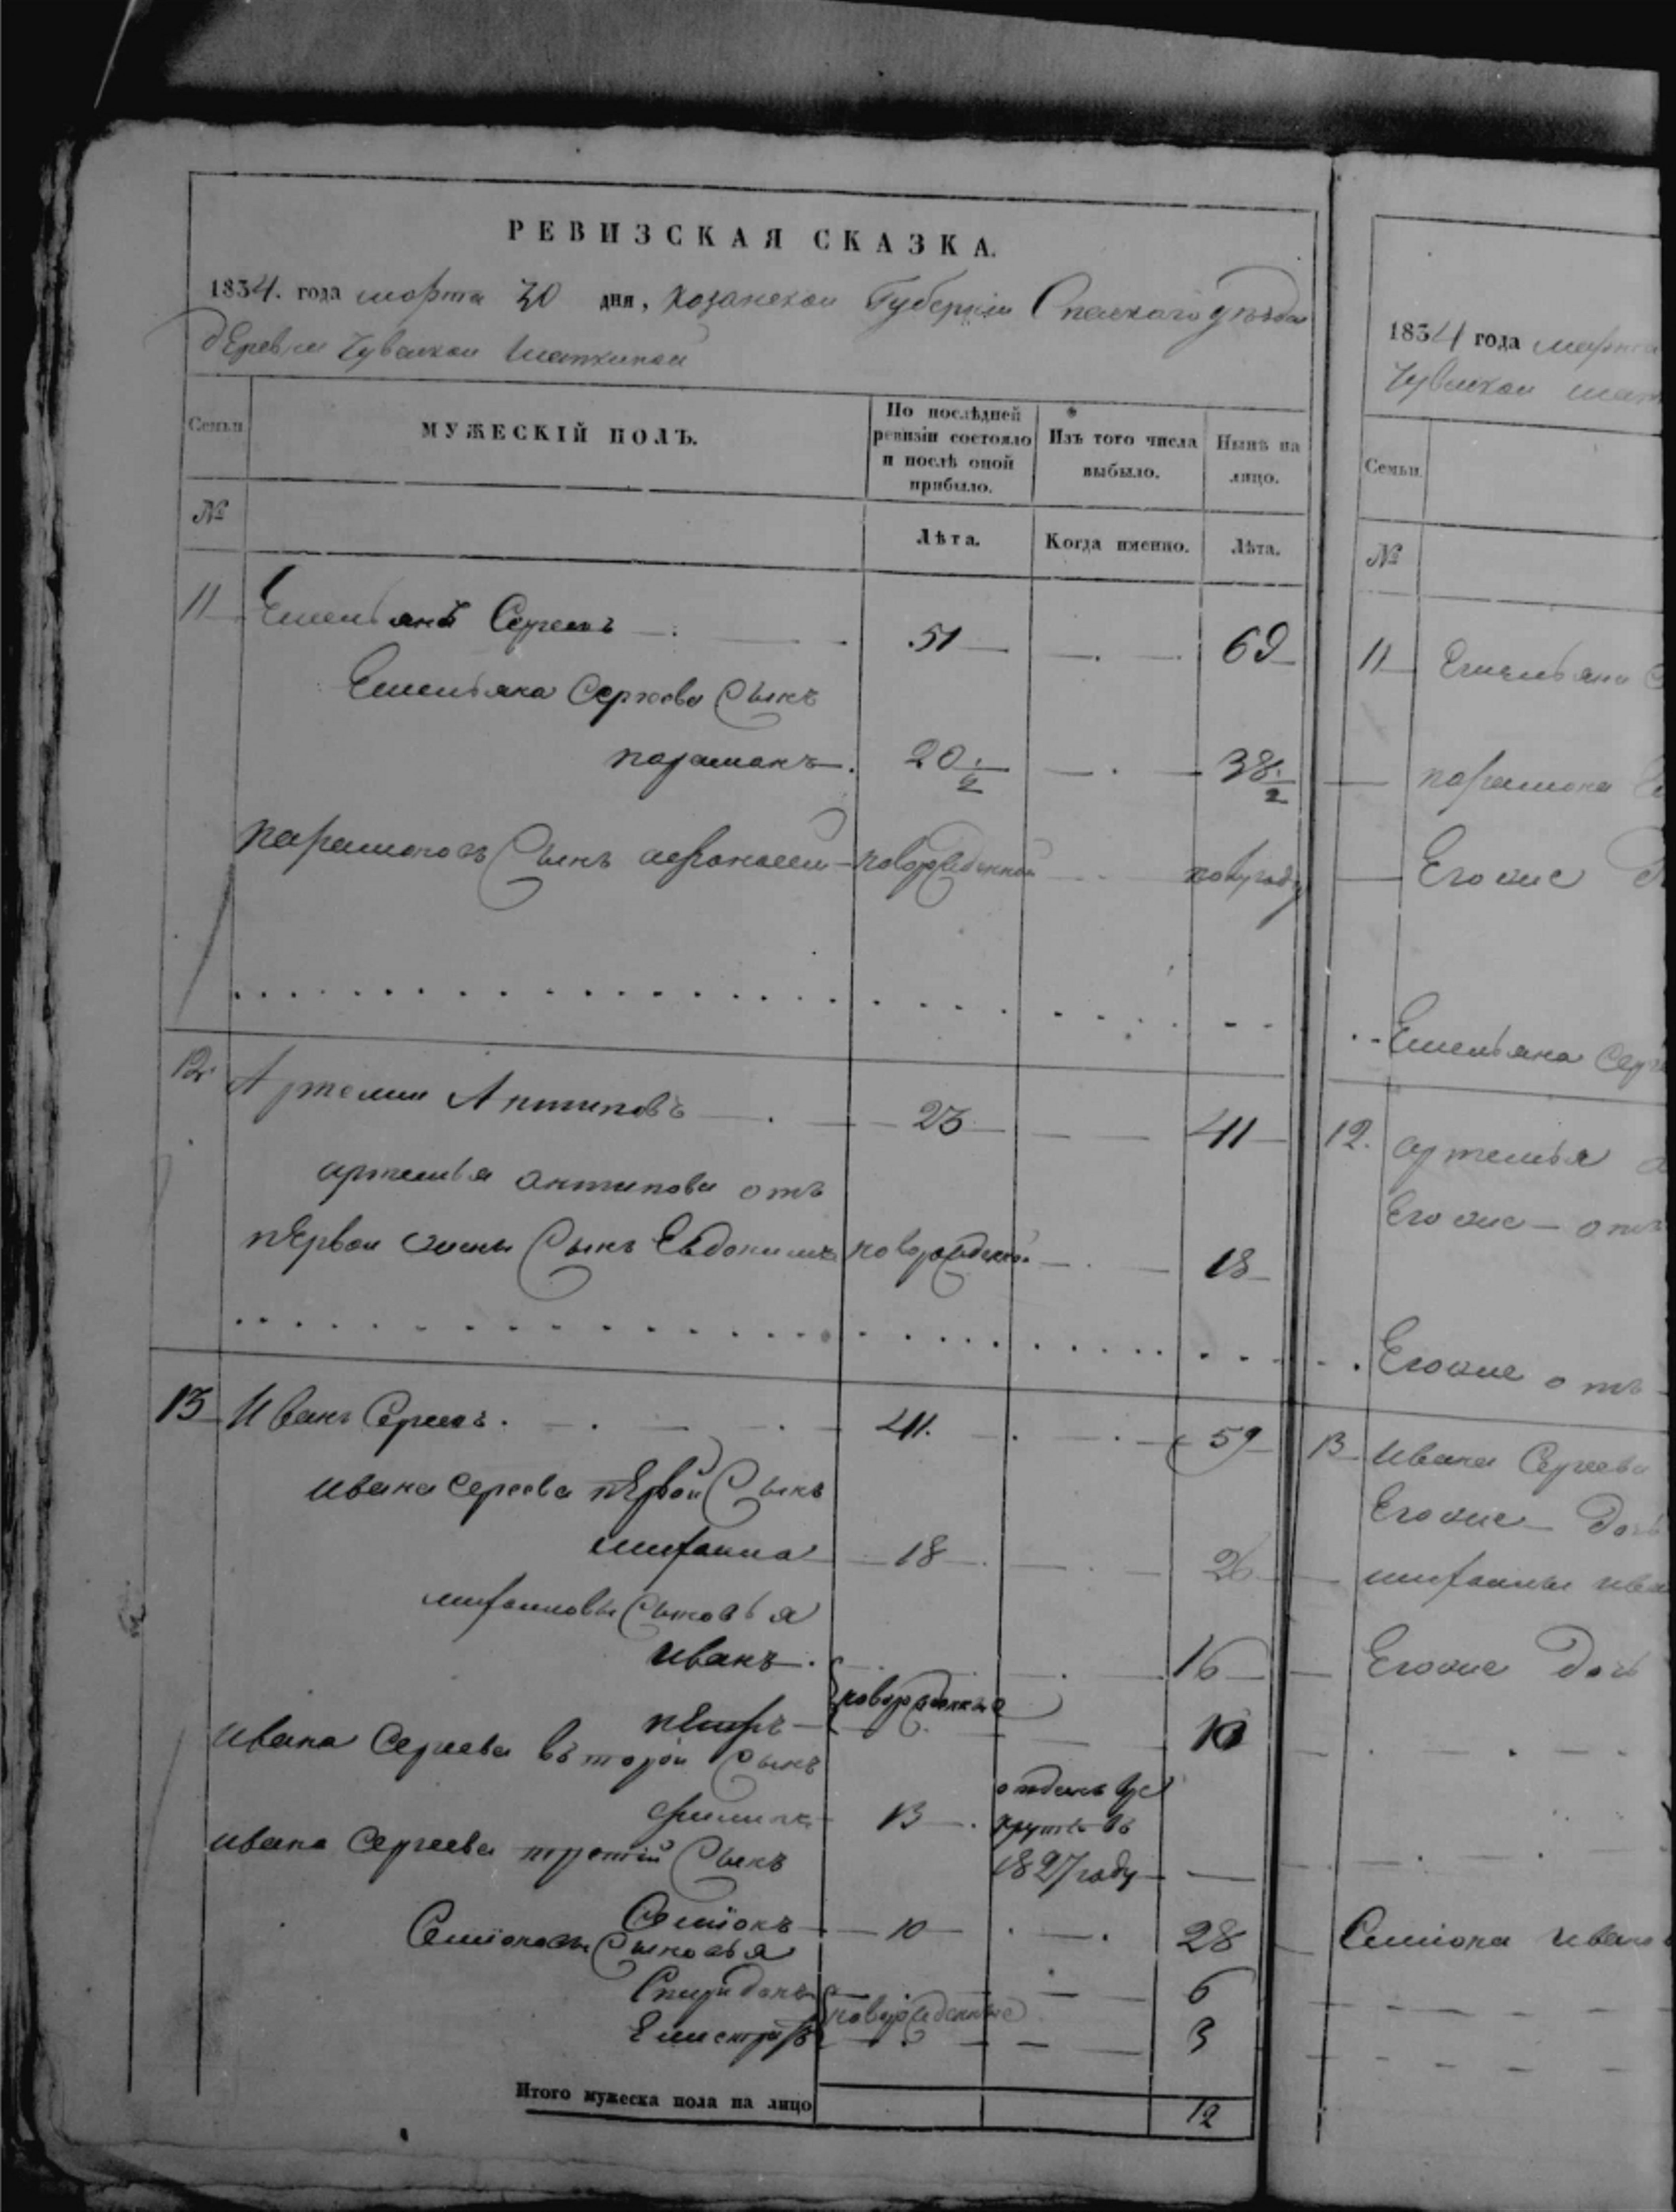 РЕВИЗСКАЯ СКАЗКА.
1834. года марта 30 дня, Казанской Губернии Спаского уезда
деревни Чуваской Шаткиной
Семьи. МУЖЕСКІЙ ПОЛЪ. По послѣдней ревизіи состояло и послѣ оной прибыло. Изъ того числа выбыло. Нынѣ на лицо.
№ Лѣта. Когда именно. Лѣта.
11 Емельянъ Сергеевъ 51 69
Емельяна Сергеева Сынъ
парамонъ 20 1/2 38 1/2
парамоновъ Сынъ афонасей новорожденной полугоду
12. Артемий Антиповъ 23 41
артемья антипова отъ
первой жены Сынъ Евдокимъ новорожденной 18
13 Иванъ Сергеевъ. 41. 59
ивана сергеева первой Сынъ
18 26
Сыновья
иванъ. 16
новорожденные
петръ
ивана Сергеева второй Сынъ
филипъ 13
1827 году
ивана Сергеева третий Сынъ
Семионъ 10 28
Семионовы Сыновья
Спиридонъ 6
новорожденные
3
Итого мужеска пола на лицо 12
1834 года марта
Чуваской
Семьи.
№
11 Емельяна
парамона
Его же
Емельяна
12. артемья
Его же отъ
Его же отъ
13 Ивана Сергеева
Его же дочь
Его же дочь
Семиона